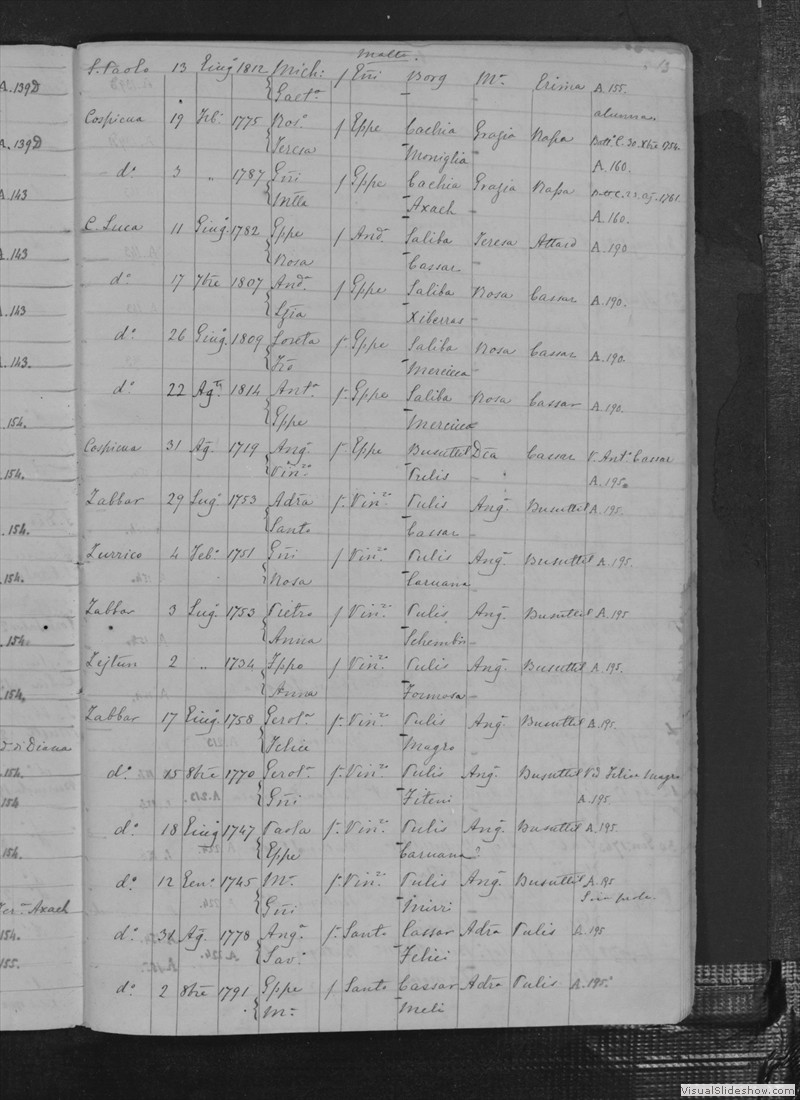 Malta.
13
S. Paolo 13 Giug.o 1812 Mich: f Gñi Borg M.a Erima A. 155.
Gaet.a –
Cospicua 19 Feb. 1775 Ros.a f Gppe Cachia Grazia Napa alunna.
Teresa Moniglia A. 160.
d.o 3 " 1787 Gñi f Gppe Cachia Grazia Napa
Axach – A. 160.
C. Luca 11 Giug.o 1782 Gppe f And. Saliba Teresa Attard A. 190
Rosa Cassar –
d.o 17 7bre 1807 And. f Gppe Saliba Rosa Cassar A. 190.
Xiberras –
d.o 26 Giug.o 1809 Loreta f. Gppe Saliba Rosa Cassar A. 190.
Mercieca –
d.o 22 Ag.to 1814 Ant.a f. Gppe Saliba Rosa Cassar A. 190.
Gppe Mercieca
Cospicua 31 Ag. 1719 Ang. f. Gppe Busuttil Dea Cassar V. Ant.o Cassar
Vin.zo Pulis – A. 195.
Zabbar 29 Lug. 1753 Adra f. Vin.zo Pulis Ang. Busuttil A. 195.
Santo Cassar –
Zurrico 4 Feb. 1751 Gñi f Vin.zo Pulis Ang. Busuttil A. 195.
Rosa Caruana
Zabbar 3 Lug. 1753 Pietro f Vin.zo Pulis Ang. Busuttil A. 195
Anna Schembri –
Zejtun 2 " 1734 Gppo f Vin.zo Pulis Ang. Busuttil A. 195.
Anna Formosa –
Zabbar 17 Giug. 1758 Gerol.a f. Vin.zo Pulis Ang. Busuttil A. 195.
Felice Magro –
d.o 15 8bre 1770 Gerol.a f. Vin.zo Pulis Ang. Busuttil Vid Felice Magro
Gñi Fiteni A. 195
d.o 18 Giug. 1747 Paola f. Vin.zo Pulis Ang. Busuttil A. 195.
Gppe Caruana
d.o 12 Gen.o 1745 M.a f. Vin.zo Pulis Ang. Busuttil A. 195
Gñi Mirri –
d.o 31 Ag. 1778 Ang. f. Santo Cassar Adra Pulis A. 195
Sav. Felici
d.o 2 8bre 1791 Gppe f Santo Cassar Adra Pulis A. 195.
M.a Meli
A. 139D
A. 139D
A. 143
A. 143
A. 143
A. 143.
154.
154.
154.
154.
154.
154.
Diana
154.
154
154.
Axach
154.
155.
VisualSlideshow.com